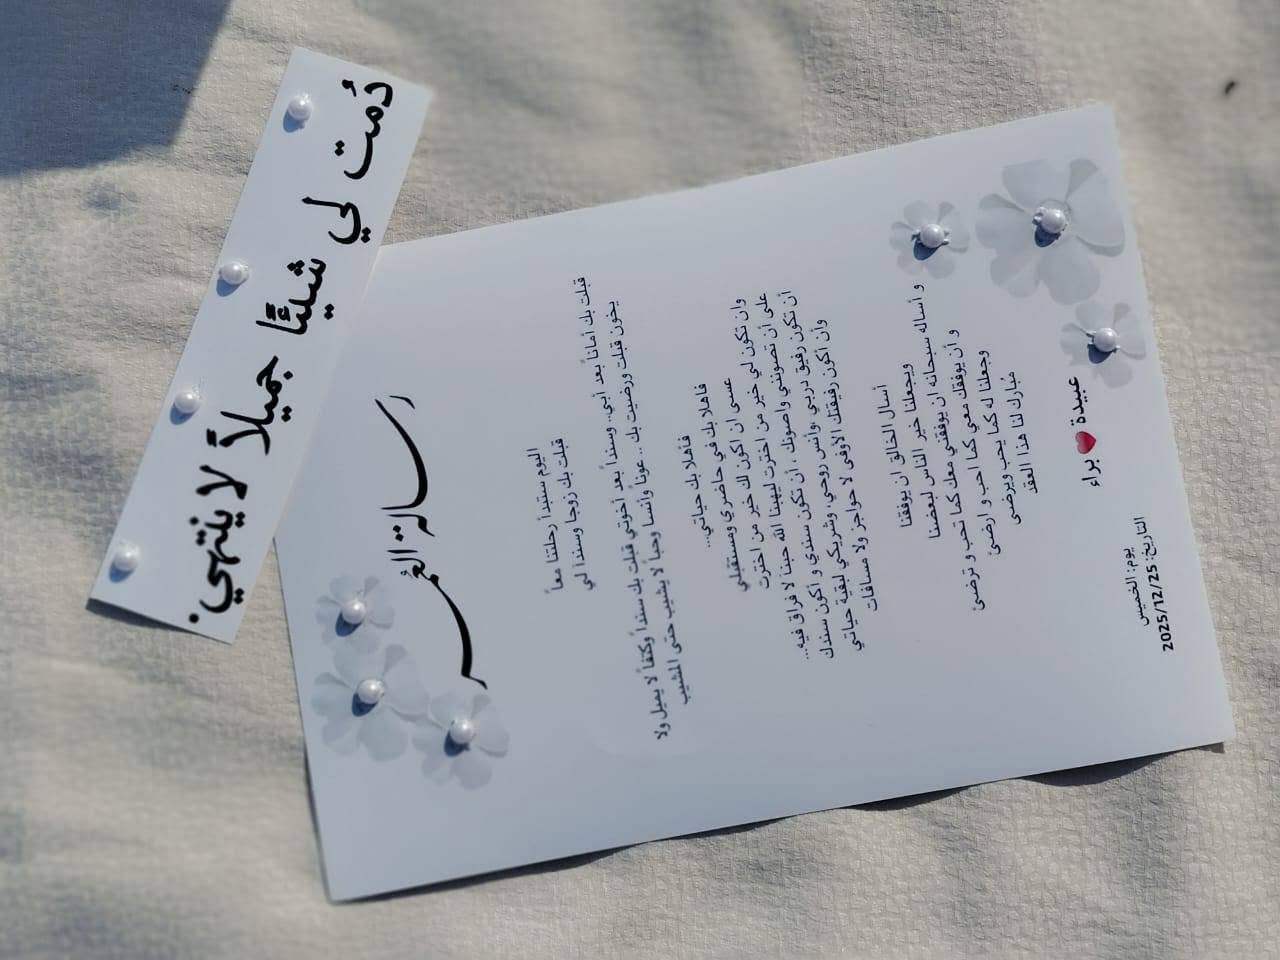 دُمت لي شيئًا جميلاً لا ينتهي.
رسالة العُمر
اليوم سنبدأ رحلتنا معاً
قبلت بك زوجا وسندا لي
قبلت بك أماناً بعد أبي.. وسنداً بعد أخوتي قبلت بك سنداً وكتفاً لا يميل ولا
يخون قبلت ورضيت بك .. عوناً وأنسا وحباً لا يشيب حتى المشيب
فأهلا بك حياتي...
فأهلا بك في حاضري ومستقبلي
عسى ان اكون لك خير من اخترت
وان تكون لي خير من اخترت ليهبنا الله حبنا لا فراق فيه...
على أن تصونني واصونك ، أن تكون سندي و أكون سندك
أن تكون رفيق دربي ,وأنس روحي، وشريكي لبقية حياتي
وأن أكون رفيقتك الأوفى لا حواجز ولا مسافات
أسال الخالق ان يوفقنا
ويجعلنا خير الناس لبعضنا
و أساله سبحانه ان يوفقني معك كما تحب و ترضى
و أن يوفقك معي كما احب و ارضى
وجعلنا له كما يحب ويرضى
مُبارك لنا هذا العقد
عبيدة ❤ براء
يوم: الخميس
التاريخ: 2025/12/25